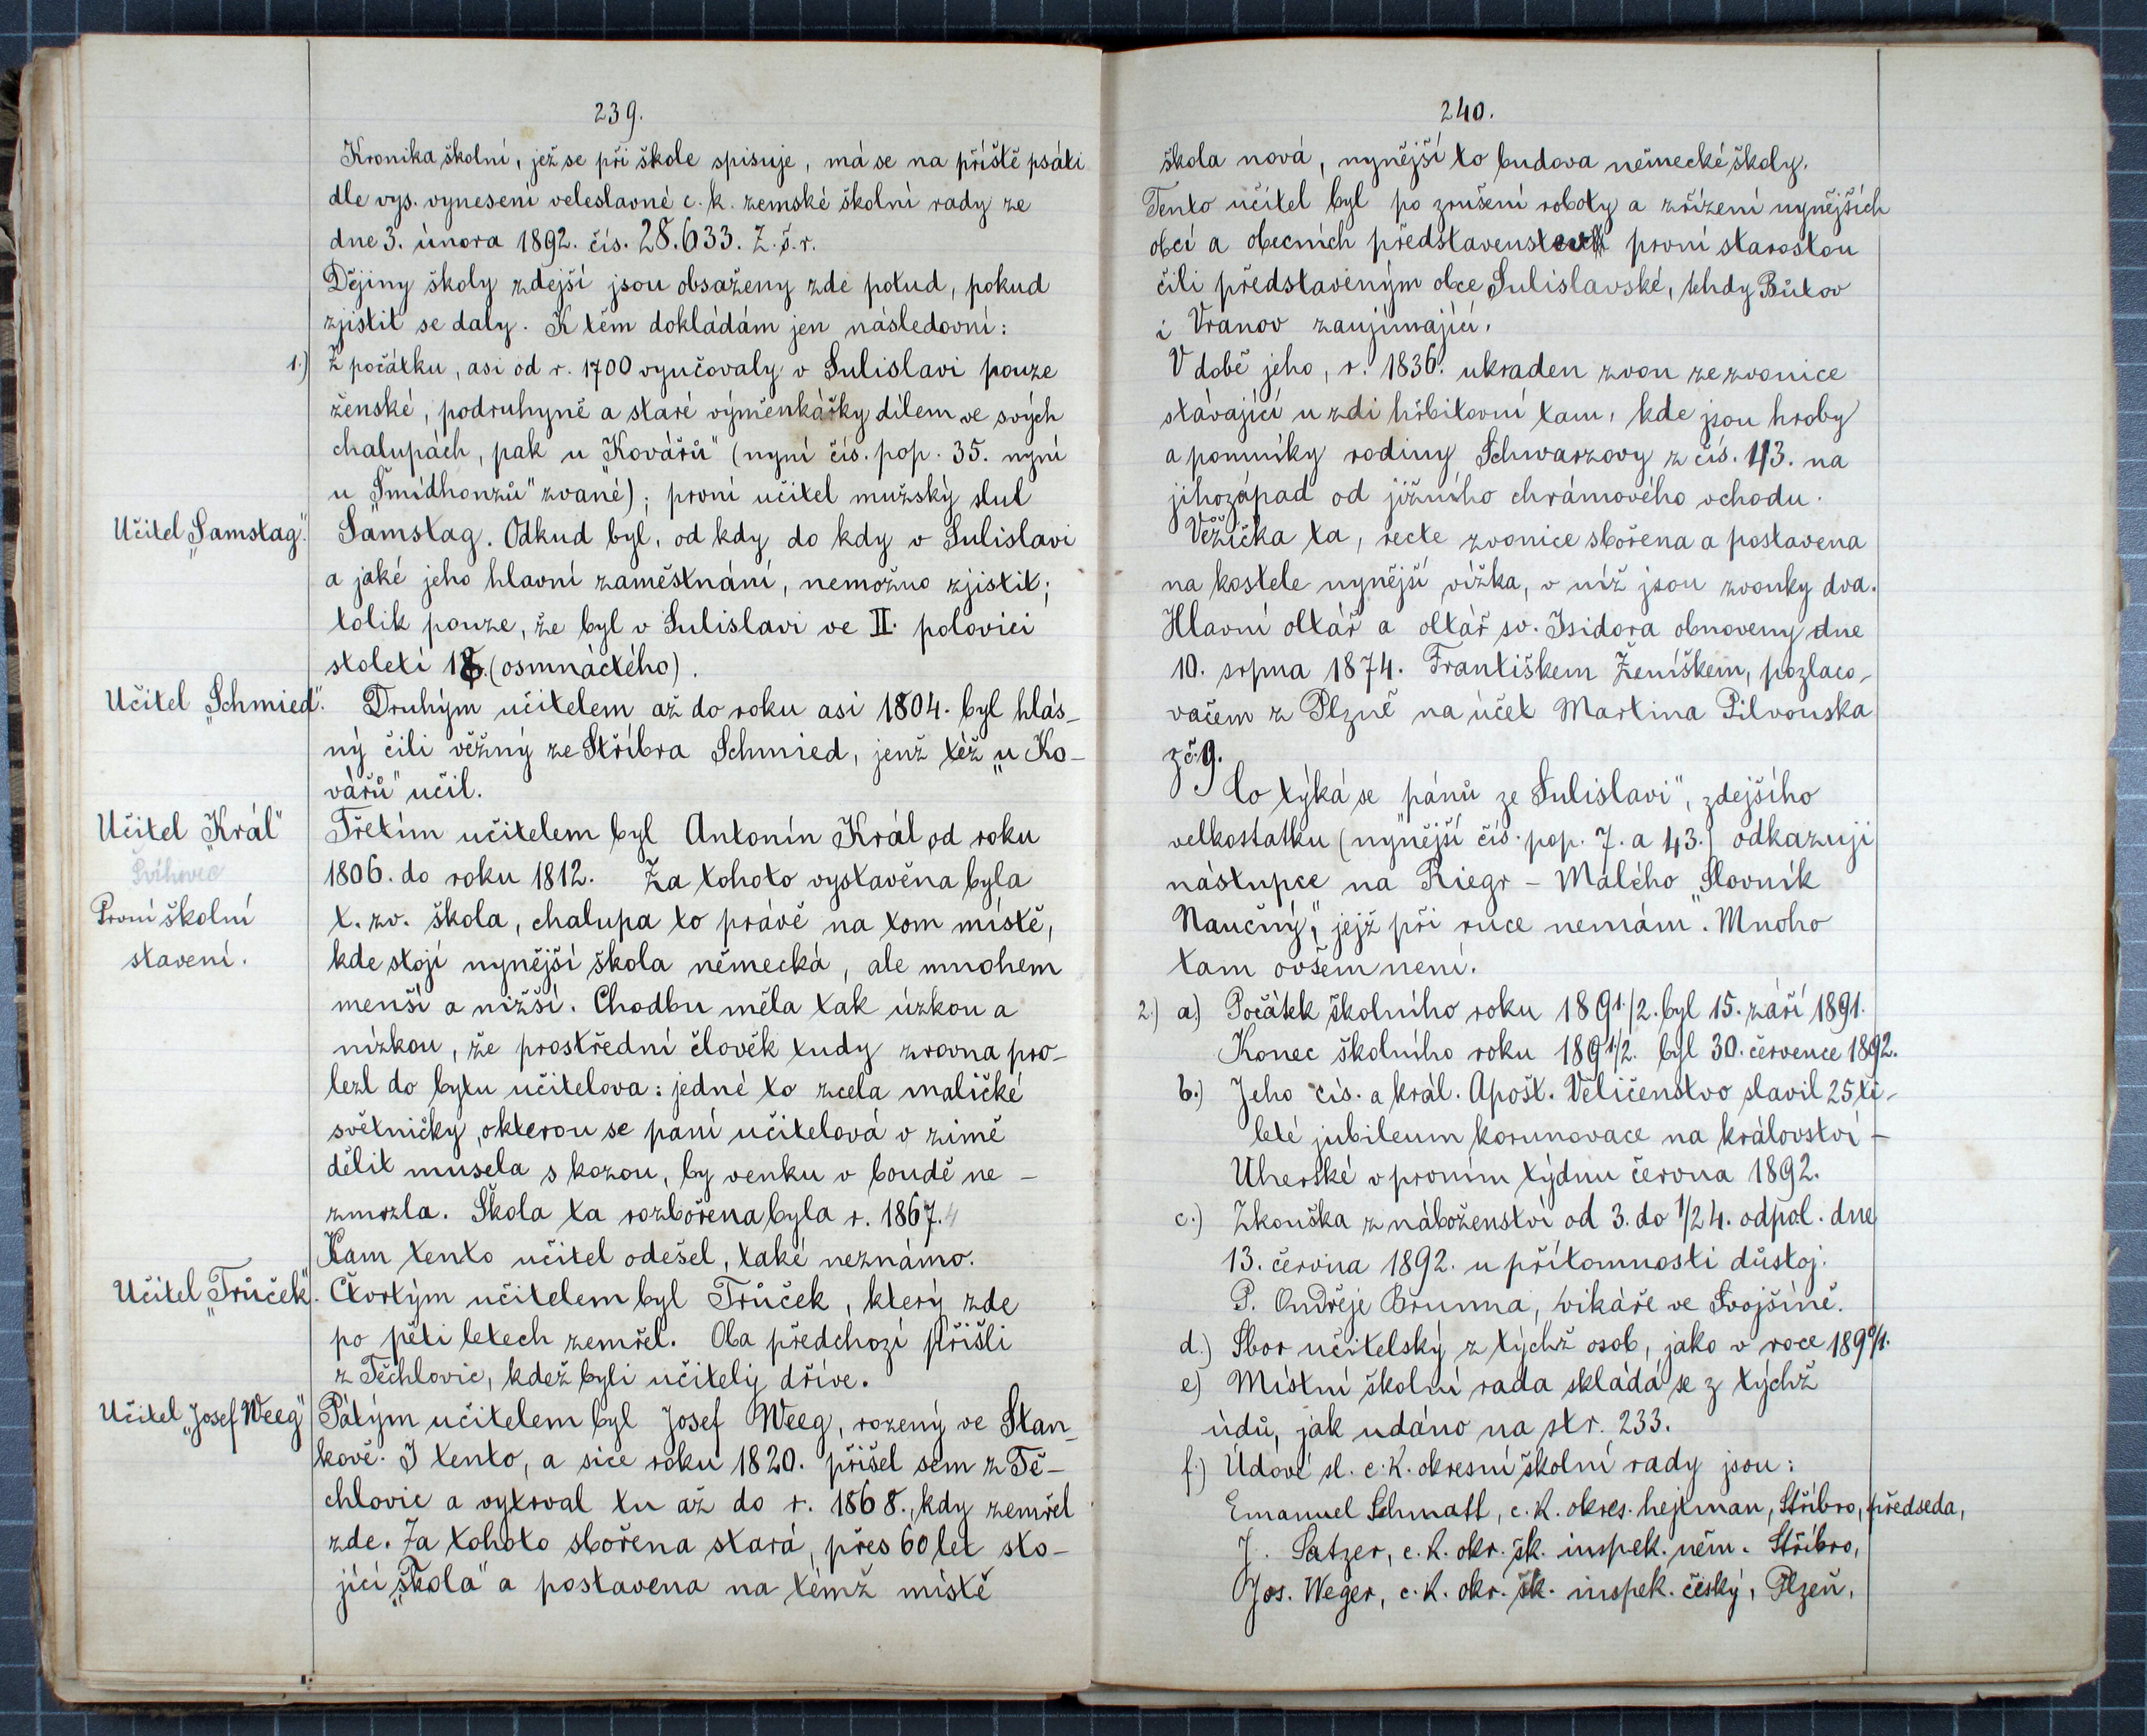 239.
Kronika školní, jež se při škole spisuje, má se na příště psáti
dle vys. vynesení veleslavné c. k. zemské školní rady ze
dne 3. února 1892. čís. 28.633. Z. š. r.
Dějiny školy zdejší jsou obsaženy zde potud, pokud
zjistit se daly. K těm dokládám jen následovní:
1.) Z počátku, asi od r. 1700 vyučovaly v Sulislavi pouze
ženské, podruhyně a staré výměnkářky dílem ve svých
chalupách, pak u „Kovářů" (nyní čís. pop. 35. nyní
u „Šmídhonzů" zvané); první učitel mužský slul
Učitel „Samstag".
Samstag. Odkud byl, od kdy do kdy v Sulislavi
a jaké jeho hlavní zaměstnání, nemožno zjistit;
tolik pouze, že byl v Sulislavi ve II. polovici
století 18. (osmnáctého).
Učitel „Schmied".
Druhým učitelem až do roku asi 1804. byl hlás-
ný čili věžný ze Stříbra Schmied, jenž též „u Ko-
vářů" učil.
Učitel „Král"
Švihovec
První školní
stavení.
Třetím učitelem byl Antonín Král od roku
1806. do roku 1812. Za tohoto vystavěna byla
t. zv. škola, chalupa to právě na tom místě,
kde stojí nynější škola německá, ale mnohem
menší a nižší. Chodbu měla tak úzkou a
nízkou, že prostřední člověk tudy zrovna pro-
lezl do bytu učitelova: jedné to zcela maličké
světničky, o kterou se paní učitelová v zimě
dělit musela s kozou, by venku v boudě ne-
zmrzla. Škola ta rozbořena byla r. 1867.4
Kam tento učitel odešel, také neznámo.
Učitel „Trůček".
Čtvrtým učitelem byl Trůček, který zde
po pěti letech zemřel. Oba předchozí přišli
z Těchlovic, kdež byli učiteli dříve.
Učitel „Josef Weeg"
Pátým učitelem byl Josef Weeg, rozený ve Stan-
kově. I tento, a sice roku 1820. přišel sem z Tě-
chlovic a vytrval tu až do r. 1868., kdy zemřel
zde. Za tohoto sbořena stará, přes 60 let sto-
jící „škola" a postavena na témž místě
240.
škola nová, nynější to budova německé školy.
Tento učitel byl po zrušení roboty a zřízení nynějších
obcí a obecních představenstev první starostou
čili představeným obce Sulislavské, tehdy Bůtov
i Vranov zaujímající.
V době jeho, r. 1836. ukraden zvon ze zvonice
stávající u zdi hřbitovní tam, kde jsou hroby
a pomníky rodiny Schwarzovy z čís. 13. na
jihozápad od jižního chrámového vchodu.
Věžička ta, recte zvonice sbořena a postavena
na kostele nynější vížka, v níž jsou zvonky dva.
Hlavní oltář a oltář sv. Isidora obnoveny dne
10. srpna 1874. Františkem Ženíškem, pozlaco-
vačem z Plzně na účet Martina Pilvouska
z č. 9.
Co týká se „pánů ze Sulislavi", zdejšího
velkostatku (nynější čís. pop. 7. a 43.) odkazuji
nástupce na Riegr - Malého „Slovník
Naučný", jejž při ruce nemám. Mnoho
tam ovšem není.
2.) a) Počátek školního roku 1891/2. byl 15. září 1891.
Konec školního roku 1891/2. byl 30. července 1892.
b.) Jeho cís. a král. Apošt. Veličenstvo slavil 25 ti-
leté jubileum korunovace na království -
Uherské v prvním týdnu června 1892.
c.) Zkouška z náboženství od 3. do 1/2 4. odpol. dne
13. června 1892. u přítomnosti důstoj.
P. Ondřeje Brunna, vikáře ve Svojšíně.
d.) Sbor učitelský z týchž osob, jako v roce 1890/1.
e) Místní školní rada skládá se z týchž
údů, jak udáno na str. 233.
f.) Údové sl. c. k. okresní školní rady jsou:
Emanuel Schmatt, c. k. okres. hejtman, Stříbro, předseda,
J. Satzer, c. k. okr. šk. inspek. něm. Stříbro,
Jos. Weger, c. k. okr. šk. inspek. český, Plzeň,